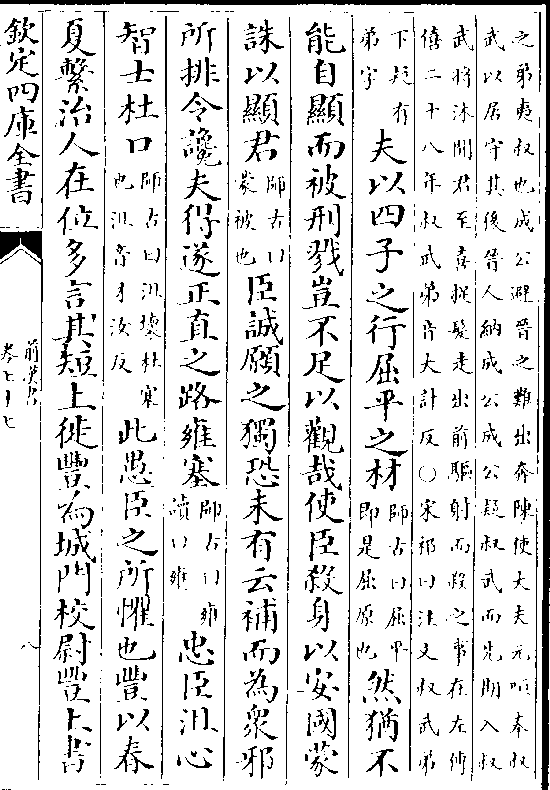 之弟夷叔也成公避晉之難出奔陳使大夫元咺奉叔
武以居守其後晉人納成公成公疑叔武而先期入叔
武將沐聞君至喜捉髮走出前驅射而殺之事在左傳
僖二十八年叔武弟音大計反○宋祁曰注文叔武弟
下疑有弟字夫以四子之行屈平之材師古曰屈平即是屈原也然猶不
能自顯而被刑戮豈不足以觀哉使臣殺身以安國蒙
誅以顯君師古曰蒙被也臣誠願之獨恐未有云補而為衆邪
所排令讒夫得遂正直之路雍塞師古曰雍讀曰雍忠臣沮心
智士杜口師古曰沮壞杜塞也沮音才汝反此愚臣之所懼也豐以春
夏繫治人在位多言其短上徙豐為城門校尉豐上書
欽定四庫全書
前漢書
卷七十七
八